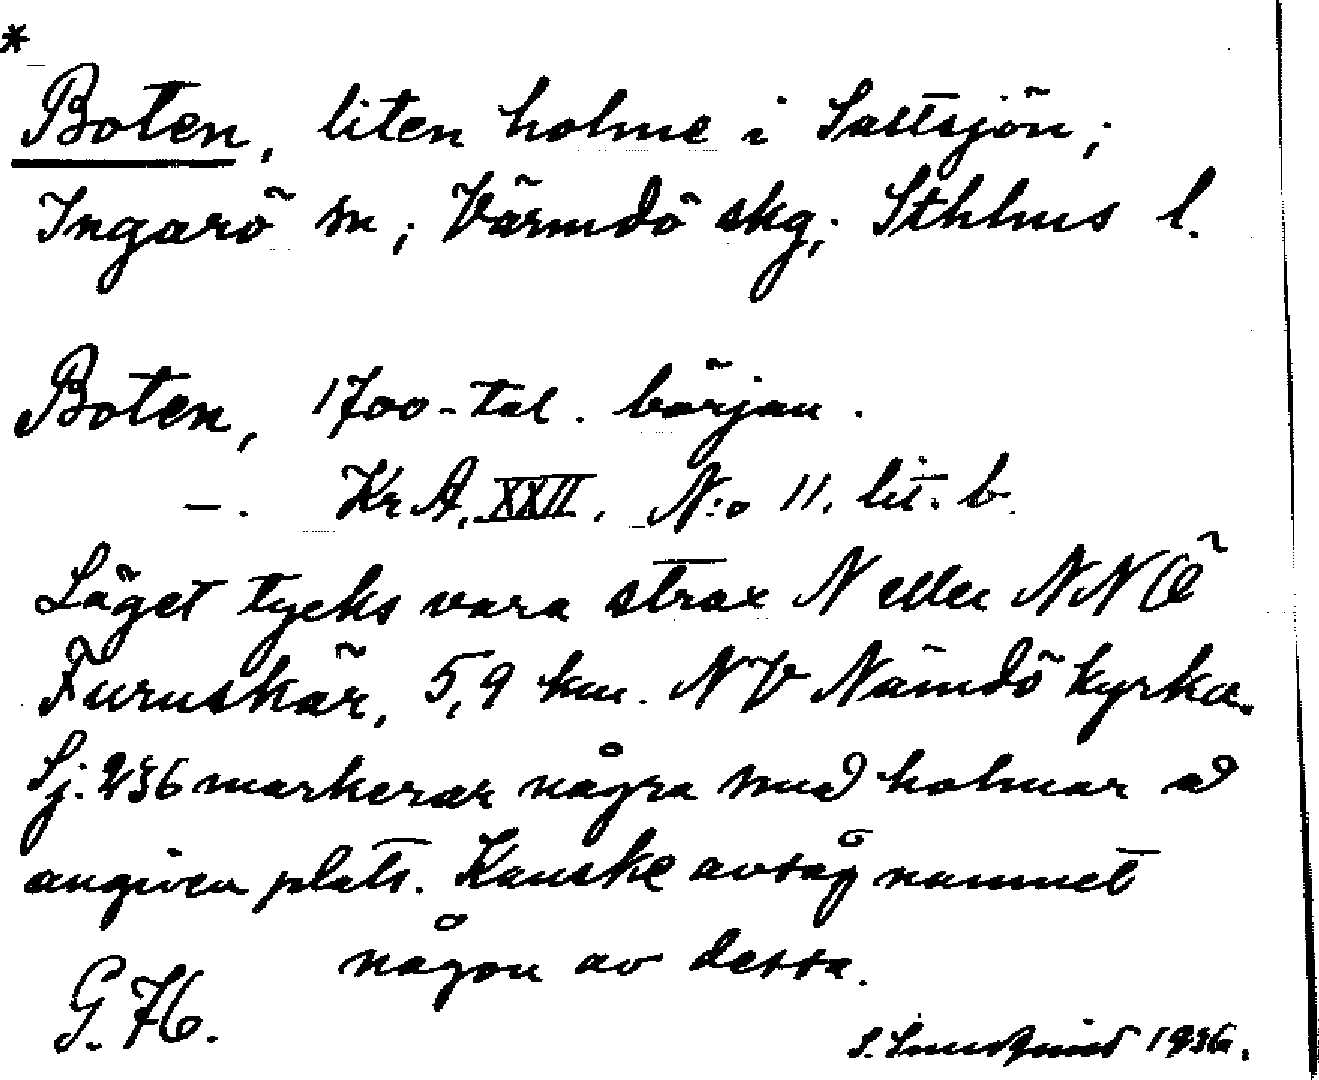 *
Boten, liten holme i Saltsjön;
Ingarö sn; Värmdö skg; Sthlms l.
Boten, 1700-tal. början.
—. Kr.A. XXII. N:o 11. lit. b.
Läget tycks vara strax N eller NNÖ
Furuskär, 5,9 km. NV Nämdö kyrka.
Sj. 236 markerar några små holmar å
angiven plats. Kanske avsåg namnet
någon av dessa.
G. H.
S. 1936.